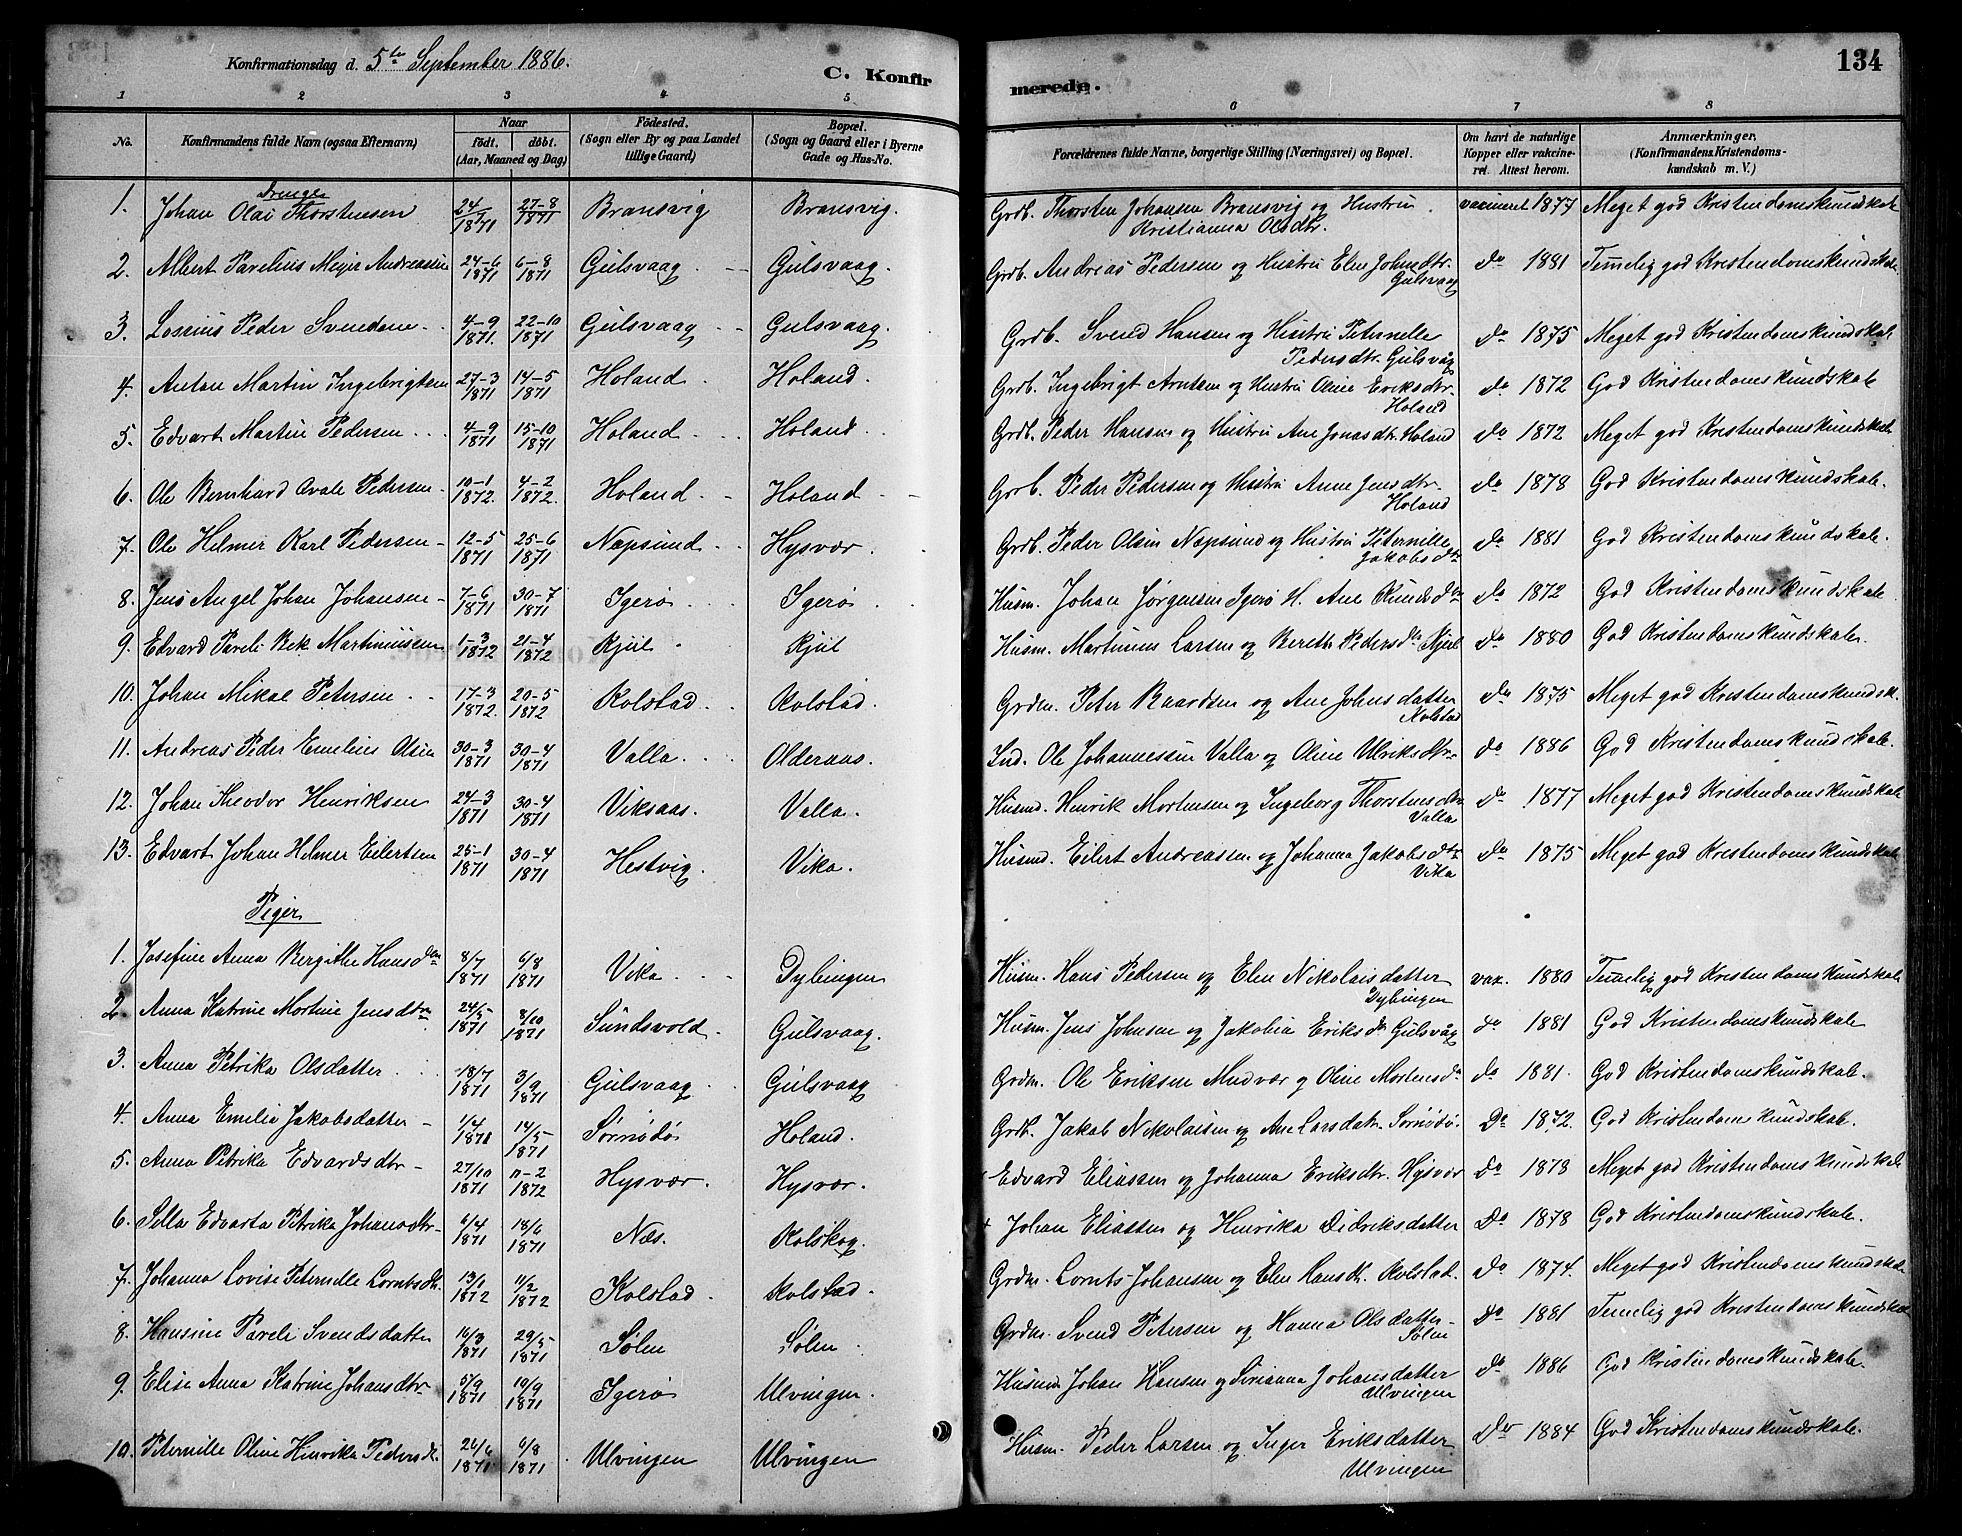 Konfirmationsdag d. 5te September 1886. C. Konfirmerede. 134
1 2 3 4 5 6 7 8
No. Konfirmandens fulde Navn (ogsaa Efternavn) Naar födt. döbt. (Aar, Maaned og Dag) Födested. (Sogn eller By og paa Landet tillige Gaard) Bopæl. (Sogn og Gaard eller i Byerne Gade og Hus-No. Forældrenes fulde Navne, borgerlige Stilling (Næringsvei) og Bopæl. Om havt de naturlige Kopper eller vakcineret. Attest herom. Anmærkninger. (Konfirmandens Kristendomskundskab m. V.)
Drenge
1. Johan Olai Thorstensen 24/1871 27-8/1871 Bransvig Bransvig. Grdb. Thorsten Johansen Bransvig og Hustru Kristianna Olsdtr. 1877 Meget god Kristendomskundskab
2. Albert Parelius Meyer Andreassen 24-6 1871 6-8 1871 Gulsvaag Gulsvaag. Grdb. Andreas Pedersen og Hustru Elen Johnsdtr. Gulsvaag do 1881 Temelig god Kristendomskundskab.
3. Peder Svendsen 4-9 1871. 22-10 1871 Gulsvaag Gulsvaag. Grdb. Svend Hansen og Hustru Peternelle Pedersdtr. Gulsvåg do 1875 Meget god Kristendomskundskab
4. Anton Martin Ingebrigtsen 27-3 1871 14-5 1871 Holand Holand. Grdb. Ingebrigt Arntsen og Hustru Oline Eriksdtr. Holand do 1872 God Kristendomskundskab
5. Edvart Martin Pedersen 4-9 1871 15-10 1871 Holand Holand. Grdb. Peder Hansen og Hustru Ane Jonasdtr. Holand do 1872 Meget god Kristendomskundskab
6. Ole Bernhard Pedersen 10-1 1872. 4-2 1872. Holand Holand Grdb. Peder Pedersen og Hustru Anne Jensdtr. Holand do 1878 God Kristendomskundskab.
7. Ole Helmer Karl Pedersen 12-5 1871 25-6 1871 Næpsund Hysvær. Grdb. Peder Olsen Næpsund og Hustru Peternille Jakobsdtr do 1881 God Kristendomskundskab.
8. Jens Angel Johan Johansen 7-6 1871 30-7 1871 Igerø Igerø Husm. Johan Jørgensen Igerø H. Ane do 1872 God Kristendomskundskab
9. Edvard Pareli Bek Martinussen 1-3 1872 21-4 1872 Kjul Kjul Husm. Martinus Larsen og Bereth Pedersdr. Kjul do 1880 God Kristendomskundskab.
10. Johan Mikal Petersen 17-3 1872. 20-5 1872 Kolstad Kolstad. Grdm. Peter Baardsen og Ane Johnsdatter Kolstad do 1875 Meget god Kristendomskundsk.
11. Andreas Peder Emelius Olsen 30-3 1871 30-4 1871 Valla. Olderaas. Ind. Ole Johannessen Valla og Oline Ulriksdtr do 1886 God Kristendomskundskab.
12. Johan Theodor Henriksen 24-3 1871 30-4 1871 Viksaas. Valla. Husmd. Henrik Mortensen og Ingeborg Thorstensdtr Valla do 1877 Meget god Kristendomskundskab
13. Edvart Johan Helmer Eilertsen 25-1 1871 30-4 1871 Hestvig. Vika. Husmd. Eilert Andreassen og Johanna Jakobsdtr Vika do 1875 Meget god Kristendomskundskab
Piger
1. Josefine Anna Bergithe Hansdtr 8/7 1871 6/8 1871 Vika Dybingen Husm. Hans Pedersen og Elen Nikolaisdatter Dybingen vax. 1880 Temelig god Kristendomskundskab
2. Anna Katrine Mortine Jensdtr 24/5 1871 8/10 1871 Sundsvold. Gulsvaag. Husm. Jens Johnsen og Jakobia Eriksdr Gulsvåg do 1881 God Kristendomskundskab
3. Anna Petrika Olsdatter 18/7 1871 3/9 1871 Gulsvaag Gulsvaag Grdm. Ole Eriksen Mudvær og Oline Mortensdr do 1881. God Kristendomskundskab.
4. Anna Emelie Jakobsdatter 1/4 1871 14/5 1871 Sørnødø Holand. Grdb. Jakob Nikolaisen og Ane Larsdatr. Sørnødø. Do 1872. God Kristendomskundskab.
5. Anna Petrika Edvardsdtr 27/10 1871 11-2 1872 Hysvær. Hysvær. Edvard Eliassen og Johanna Eriksdtr. Hysvær Do 1878 Meget god Kristendomskundskab
6. Sella Edvarta Petrika Johansdtr 6/4 1871 18/6 1871 Næs. Kolskog. + Johan Eliassen og Henrika Didriksdatter Do 1878 God Kristendomskundskab.
7. Johanna Lovise Peternelle Lorntsdtr. 13/1 1872 11/2 1872 Kolstad Kolstad. Grdm. Lornts Johansen og Elen Hansdtr. Kolstad. Do 1874. Meget god Kristendomskundskab
8. Hansine Pareli Svendsdatter 16/3 1871 29/5 1871 Sølen Sølen Grdm. Svend Petersen og Hanna Olsdatter Sølen Do 1881 Temelig god Kristendomskundskab
9. Elise Anna Katrine Johansdtr 5/9 1871 10/9 1871 Igerø Ulvingen. Husm Johan Hansen og Sirianna Johansdatter Ulvingen do 1886 God Kristendomskundskab.
10. Peternille Oline Henrika Pedersd. 26/6 1871 6/8 1871 Ulvingen Ulvingen Husm. Peder Larsen og Inger Eriksdatter Ulvingen Do 1884 God Kristendomskundskab.